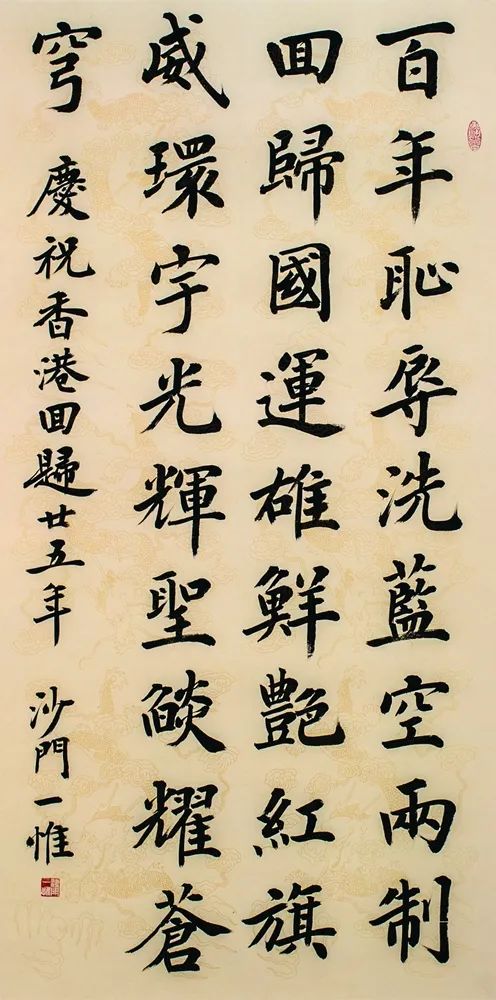 百年恥辱洗藍空兩制
回歸國運雄鮮艷紅旗
威環宇光輝聖燄耀蒼
穹
慶祝香港回歸廿五年
沙門一惟